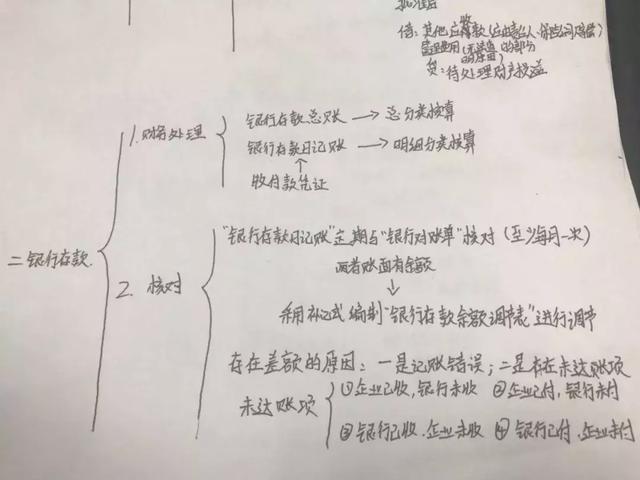 批准后
借:其他应收款(应由责任人、保险公司赔偿)
管理费用(无法查明的部分
贷:待处理财产损溢
银行存款总账 → 总分类核算
1.财务处理
银行存款日记账 → 明细分类核算
↑
收付款凭证
"银行存款日记账"定期与"银行对账单"核对(至少每月一次)
二银行存款.
两者账面有余额
2. 核对
↓
采用补记式编制"银行存款余额调节表"进行调节
存在差额的原因:一是记账错误;二是存在未达账项
未达账项
①企业已收,银行未收 ②企业已付,银行未付
③银行已收.企业未收 ④银行已付.企业未付